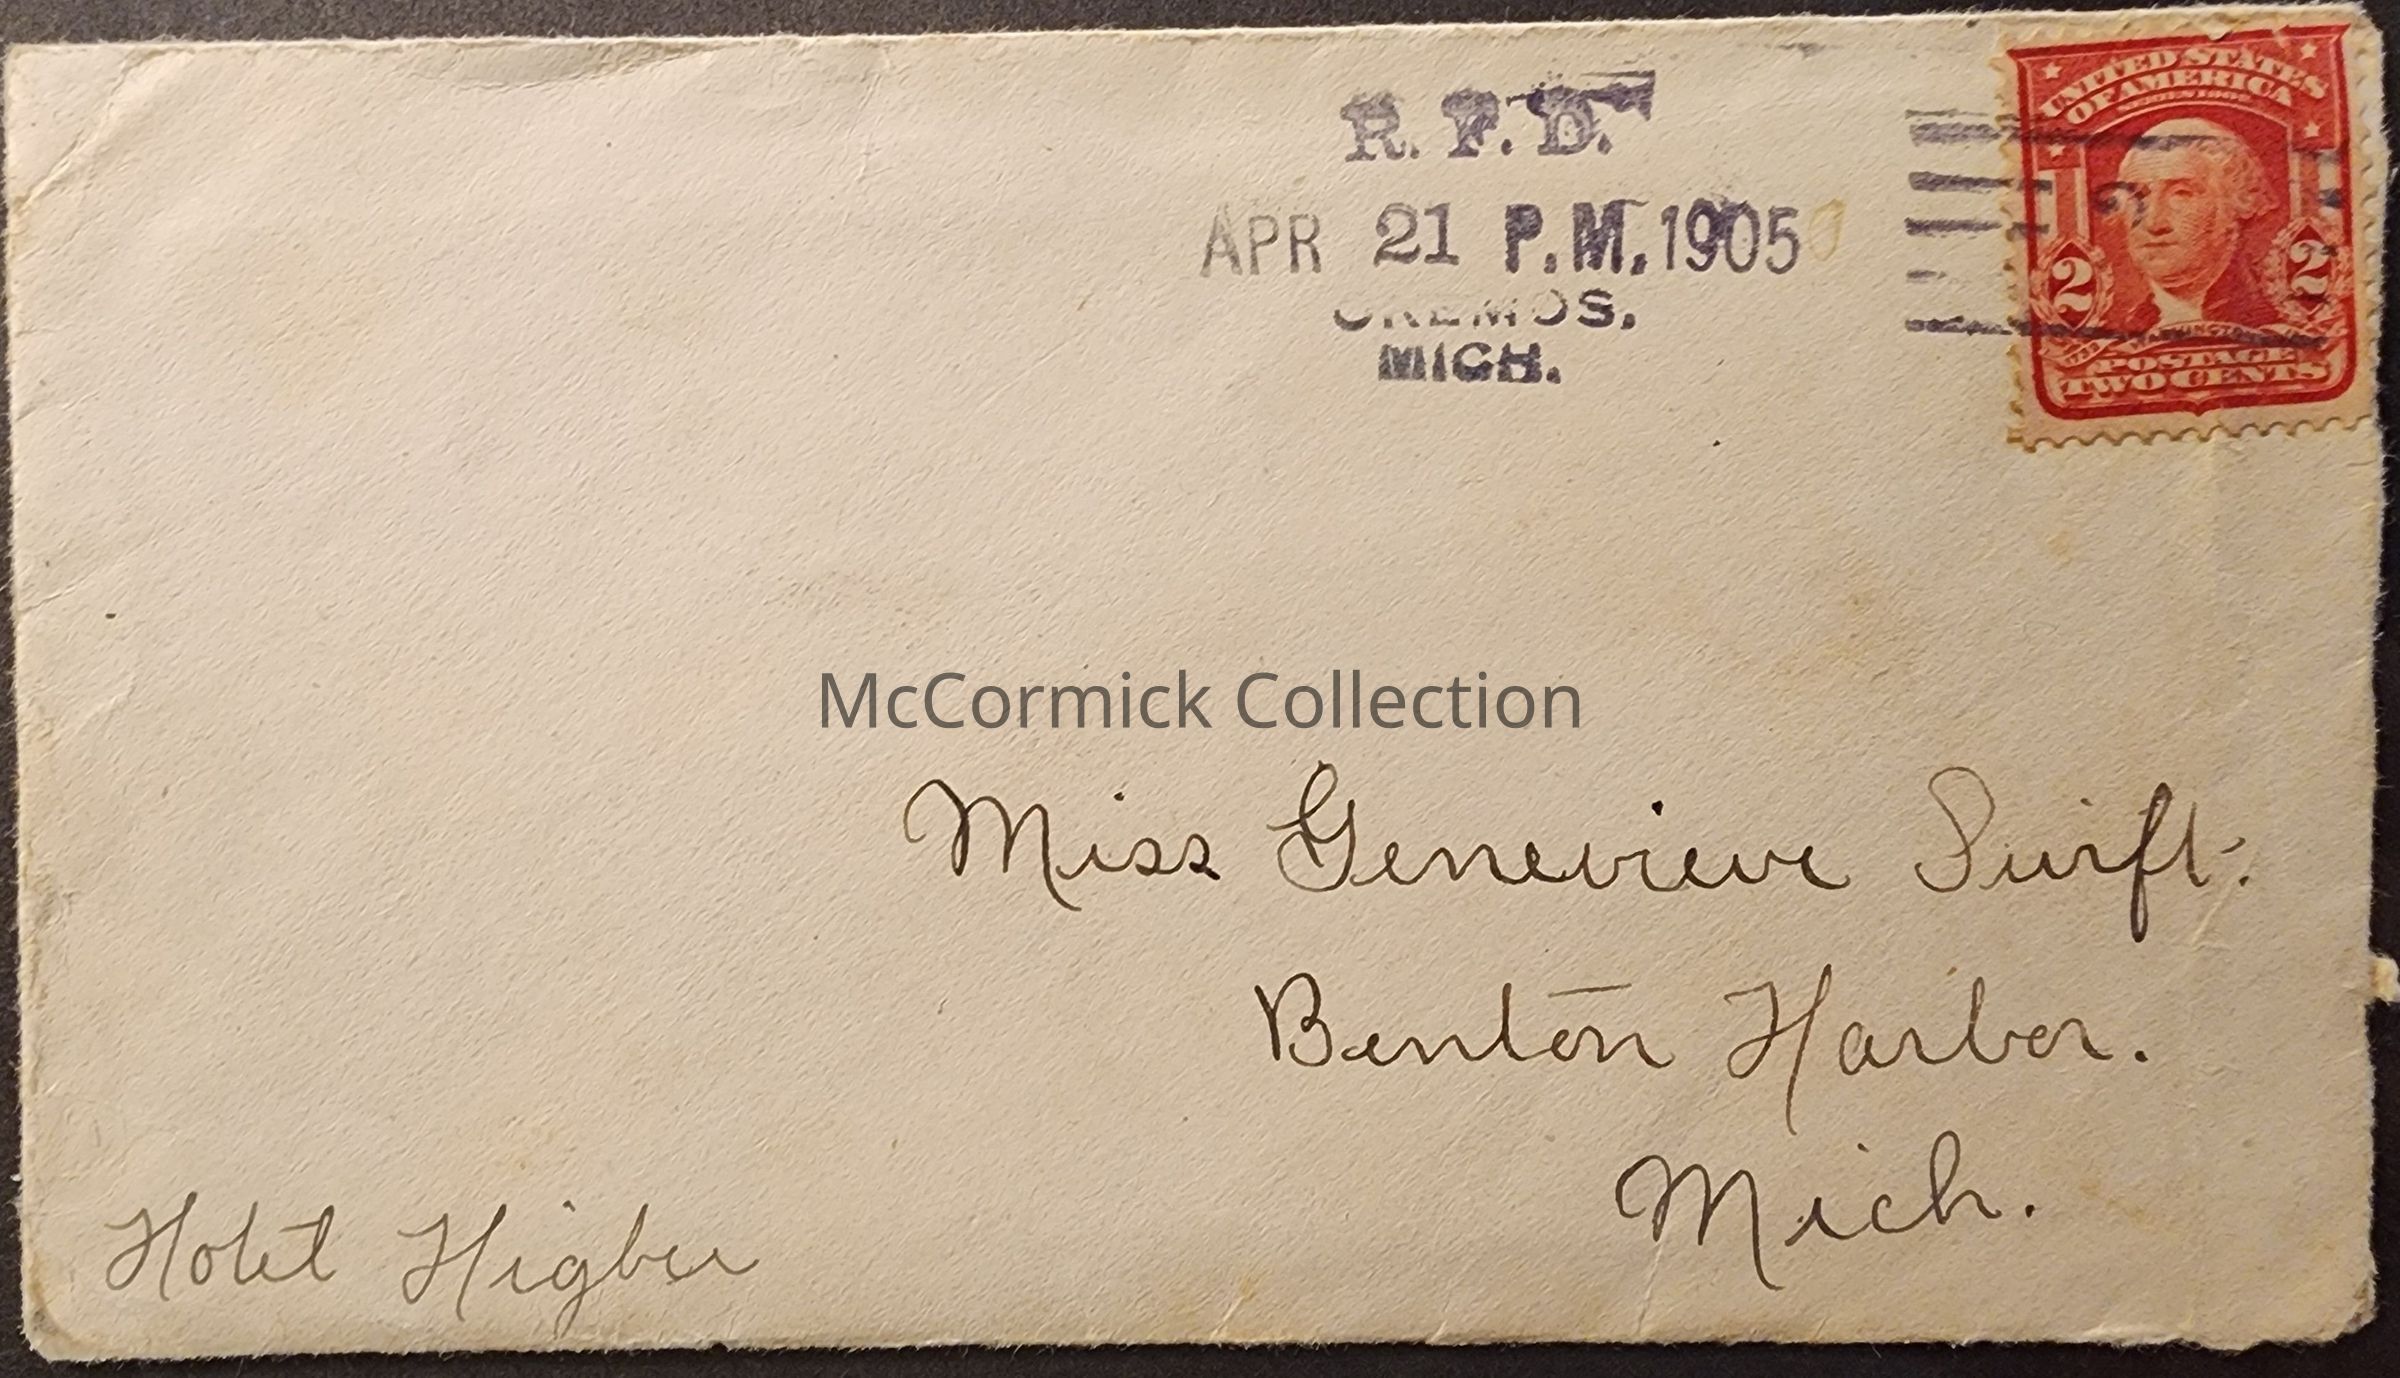 R. F. D.
APR 21 P.M. 1905
OKEMOS,
MICH.
UNITED STATES
OF AMERICA
2 2
POSTAGE
TWO CENTS
McCormick Collection
Miss Genevieve Swift.
Benton Harbor.
Mich.
Hotel Higbee